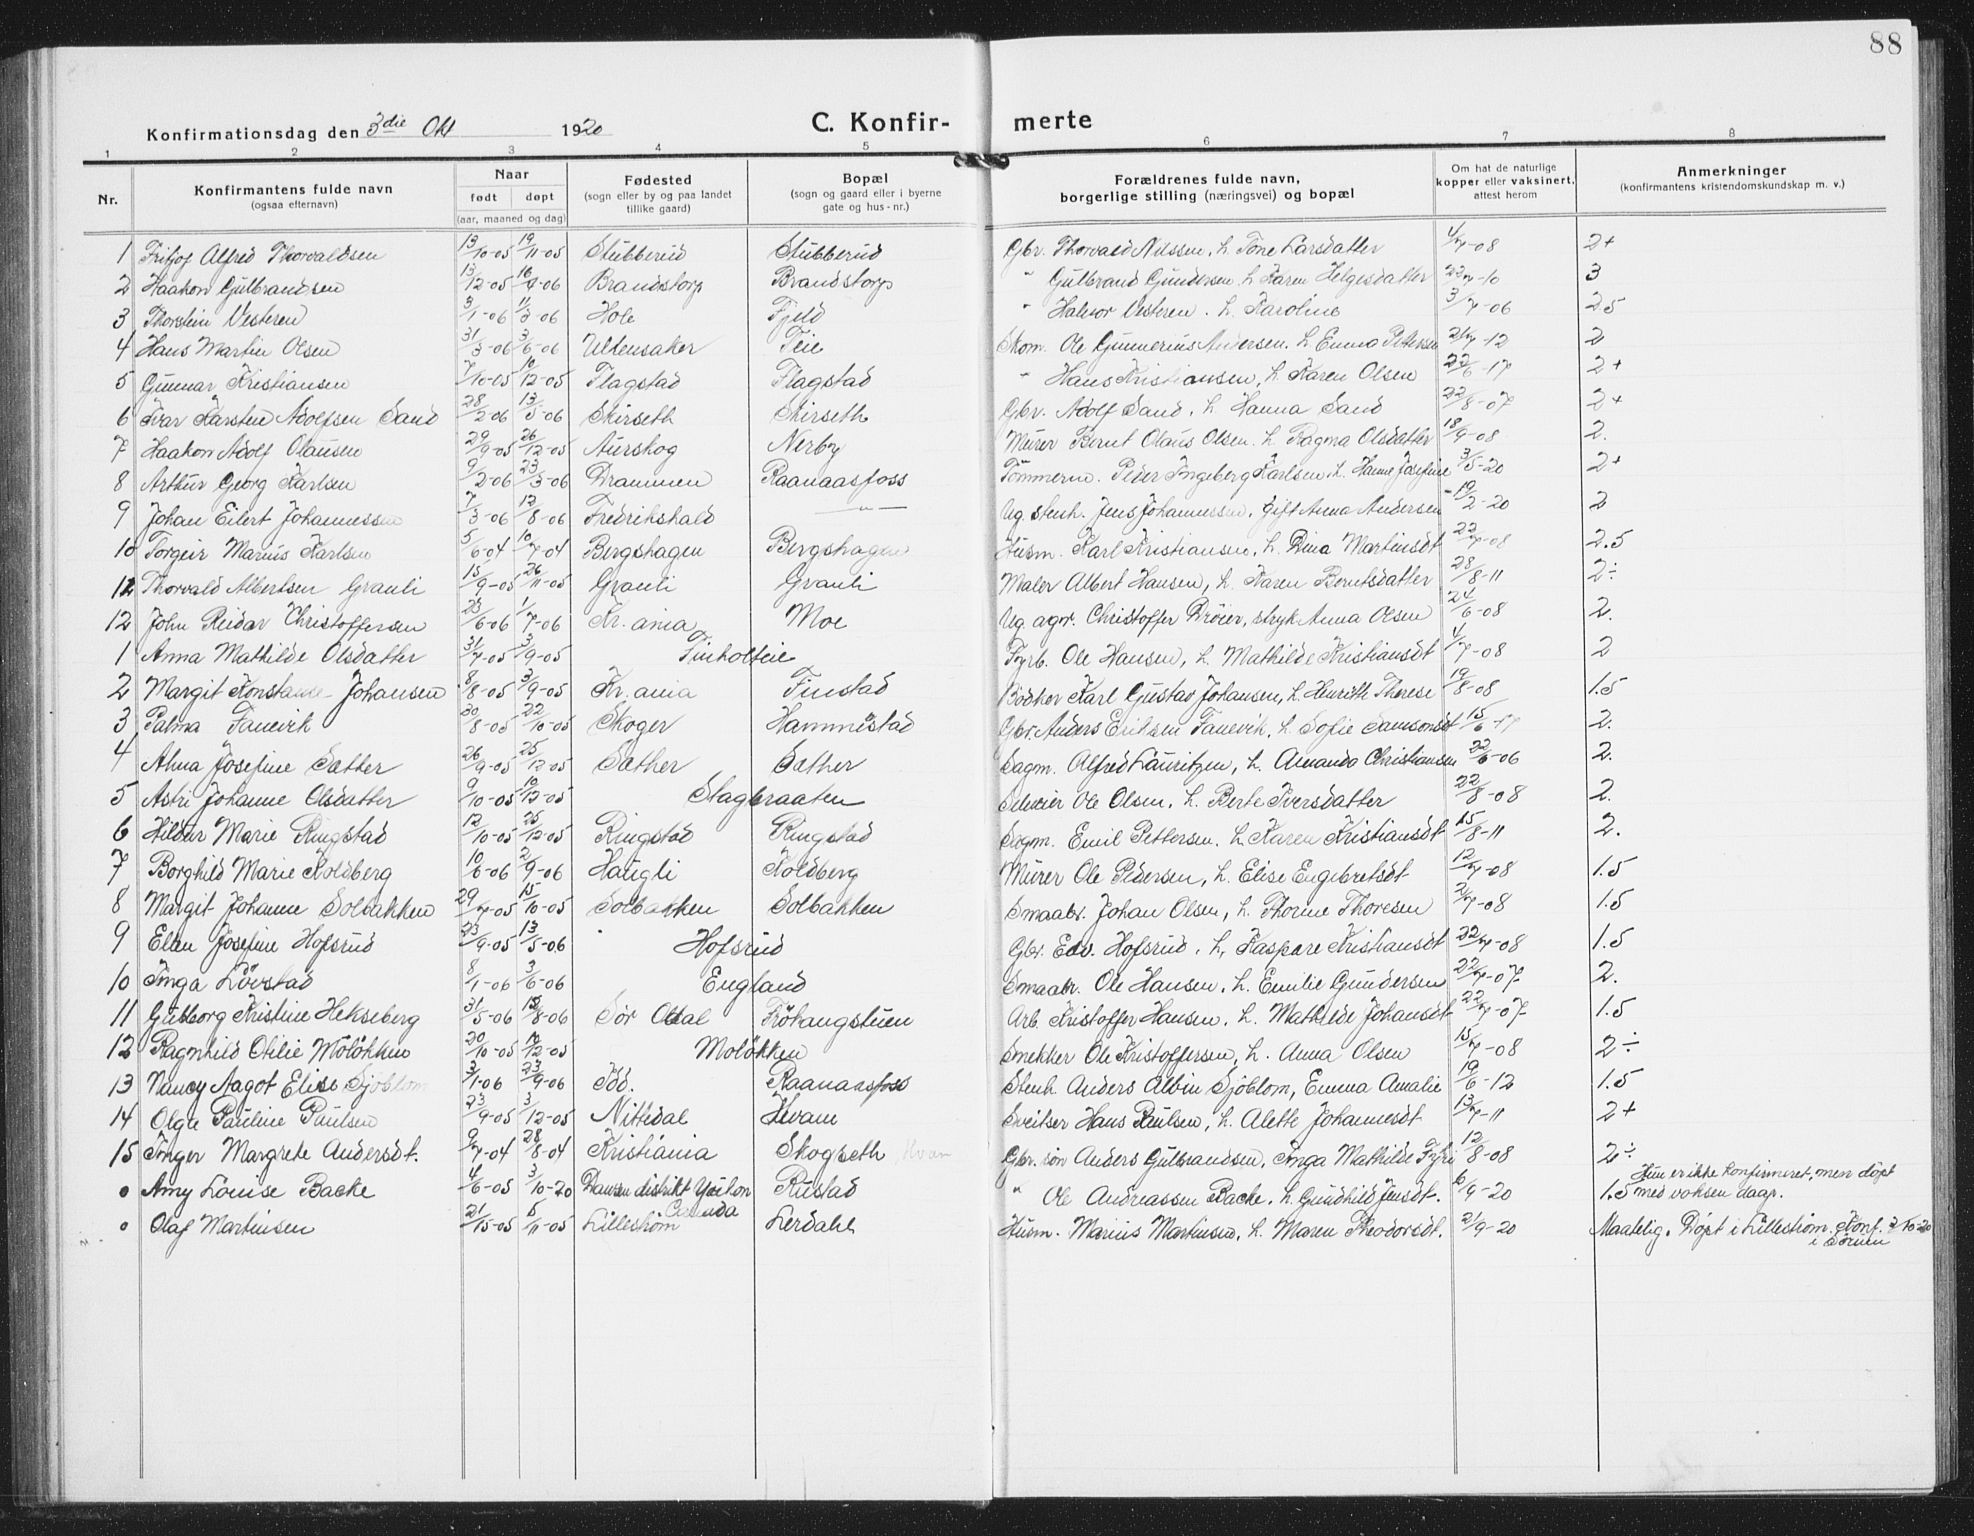 88
Konfirmationsdag den 3die Okt 1920
C. Konfir- merte
1 2 3 4 5 6 7 8
Nr. Konfirmantens fulde navn (ogsaa efternavn) Naar født døpt (aar, maaned og dag) Fødested (sogn eller by og paa landet tillike gaard) Bopæl (sogn og gaard eller i byerne gate og hus-nr.) Forældrenes fulde navn, borgerlige stilling (næringsvei) og bopæl Om hat de naturlige kopper eller vaksinert, attest herom Anmerkninger (konfirmantens kristendomskundskap m. v.)
1 Fritjof Alfred Thorvaldsen 13/10-05 19/11-05 Stubberud Stubberud Gbr. Thorvald Nilssen, h. Tone Larsdatter 4/7-08 2+
2 Haakon Gulbrandsen 13/12-05 16/4-06 Brandstorp Brandstorp " Gulbrand Gundersen h. Karen Helgesdatter 22/7-10 3
3 Thorstein Vesteren 3/1-06 11/3-06 Hole Fjeld " Halvor Vesteren. h. Karoline 3/7-06 2.5
4 Hans Martin Olsen 31/3-06 3/6-06 Ullensaker Teie Skom. Ole Gunnerius Andersen. h. Emma Pettersen 21/7-12 2
5 Gunnar Kristiansen 7/10-05 10/12-05 Flagstad Flagstad " Hans Kristiansen, h. Karen Olsen 22/6-17 2+
6 Ivar Karsten Adolfsen Sand 28/2-06 13/5-06 Skirseth Skirseth Gbr. Adolf Sand, h. Hanna Sand 22/8-07 2+
7 Haakon Adolf Olausen 29/9-05 26/12-05 Aurskog Nerby Murer Bernt Olaus Olsen. h. Ragna Olsdatter 18/9-08 2.
8 Arthur Georg Karlsen 9/2-06 23/3-06 Drammen Raanaasfoss Tømmerm. Peder Ingeberg Karlsen. h. Hanne Josefine 3/5-20 2+
9 Johan Eilert Johannessen 7/3-06 12/8-06 Fredrikshald —"— Ug. stenh. Jens Johannessen. Gift Anna Andersen 19/2-20 2
10 Torgeir Marius Karlsen 5/6-04 10/7-04 Bergshagen Bergshagen Husm. Karl Kristiansen, h. Dina Martinsdt 22/7-08 2.5
11 Thorvald Albertsen Granli 15/9-05 26/11-05 Granli Granli Maler Albert Hansen, h. Karen Berntsdatter 28/8-11 2÷
12 John Reidar Christoffersen 23/6-06 1/7-06 Kr.ania Moe Ug agr. Christoffer Brøier, stryk Anna Olsen 24/6-08 2.
1 Anna Mathilde Olsdatter 31/7-05 3/9-05 Finholteie Fyrb. Ole Hansen, h. Mathilde Kristiansdt 4/7-08 2
2 Margit Konstanse Johansen 8/8-05 3/9-05 Kr.ania Finstad Bødker Karl Gustav Johansen, h. Henriette Therese 19/8-08 1.5
3 Palma Fanevik 30/8-05 22/10-05 Skoger Hammestad Gbr. Anders Eriksen Fanevik, h. Sofie Samsonsdt 15/6-17 2.
4 Alma Josefine Sather 26/9-05 25/12-05 Sather Sather Sagm. Alfred Lauritzen, h. Amanda Christiansen 22/6-06 2.
5 Astri Johanne Olsdatter 9/10-05 10/12-05 Stagbraaten Selveier Ole Olsen, h. Berte Iversdatter 22/8-08 2.
6 Hildur Marie Ringstad 12/10-05 25/12-05 Ringstad Ringstad Sagm. Emil Pettersen. h. Karen Kristiansdt 15/8-11 2.
7 Borghild Marie Koldberg 10/6-06 2/9-06 Haugli Koldberg Murer Ole Pedersen, h. Elise Engebretsdt 12/7-08 1.5
8 Margit Johanne Solbakken 29/7-05 15/10-05 Solbakken Solbakken Smaabr. Johan Olsen, h. Thorine Thoresen 2/7-08 1.5
9 Elen Josefine Hofsrud 23/9-05 13/5-06 Hofsrud Gbr. Edv. Hofsrud, h, Kaspara Kristiansdt 22/7-08 1.5
10 Inga Løvstad 8/1-06 3/6-06 England Smaabr. Ole Hansen, h. Emilie Gundersen 22/7-07 2.
11 Gutborg Kristine Hekseberg 31/5-06 12/8-06 Sør Odal Frøhaugstuen Arb. Kristoffer Hansen, h. Mathilde Johansdt 22/7-07 1.5
12 Ragnhild Otilie Moløkken 20/10-05 10/12-05 Moløkken Snekker Ole Kristoffersen, h. Anna Olsen 15/7-08 2÷
13 Nancy Aagot Elise Sjøblom 3/1-06 23/9-06 Idd. Raanaasfoss Stenh. Anders Albin Sjöblom, Emma Amalie 19/6-12 1.5
14 Olga Pauline Paulsen 23/9-05 3/12-05 Nittedal Hvam Sveitser Hans Paulsen, h. Alette Johannesdt 13/7-11 2+
15 Inger Margrete Andersdt. 9/7-04 28/8-04 Kristiania Skogseth, Hvam Gbr. søn Anders Gulbrandsen, Inga Mathilde Fyri 12/8-08 2÷
o Amy Louise Backe 4/6-05 3/10-20 Dawson distrikt Yukon Canada Rustad " Ole Andreassen Backe, h. Gundhild Jensdt. 6/9-20 1.5 Hun er ikke konfirmeret, men døpt med voksen daap.
o Olaf Martinsen 21/15-05 5/11-05 Lillestrøm Lerdahl Husm. Marius Martinsen, h. Maren Theodorsdt. 2/9-20 Maadelig. Døpt i Lillestrøm. Konf. 3/10-20